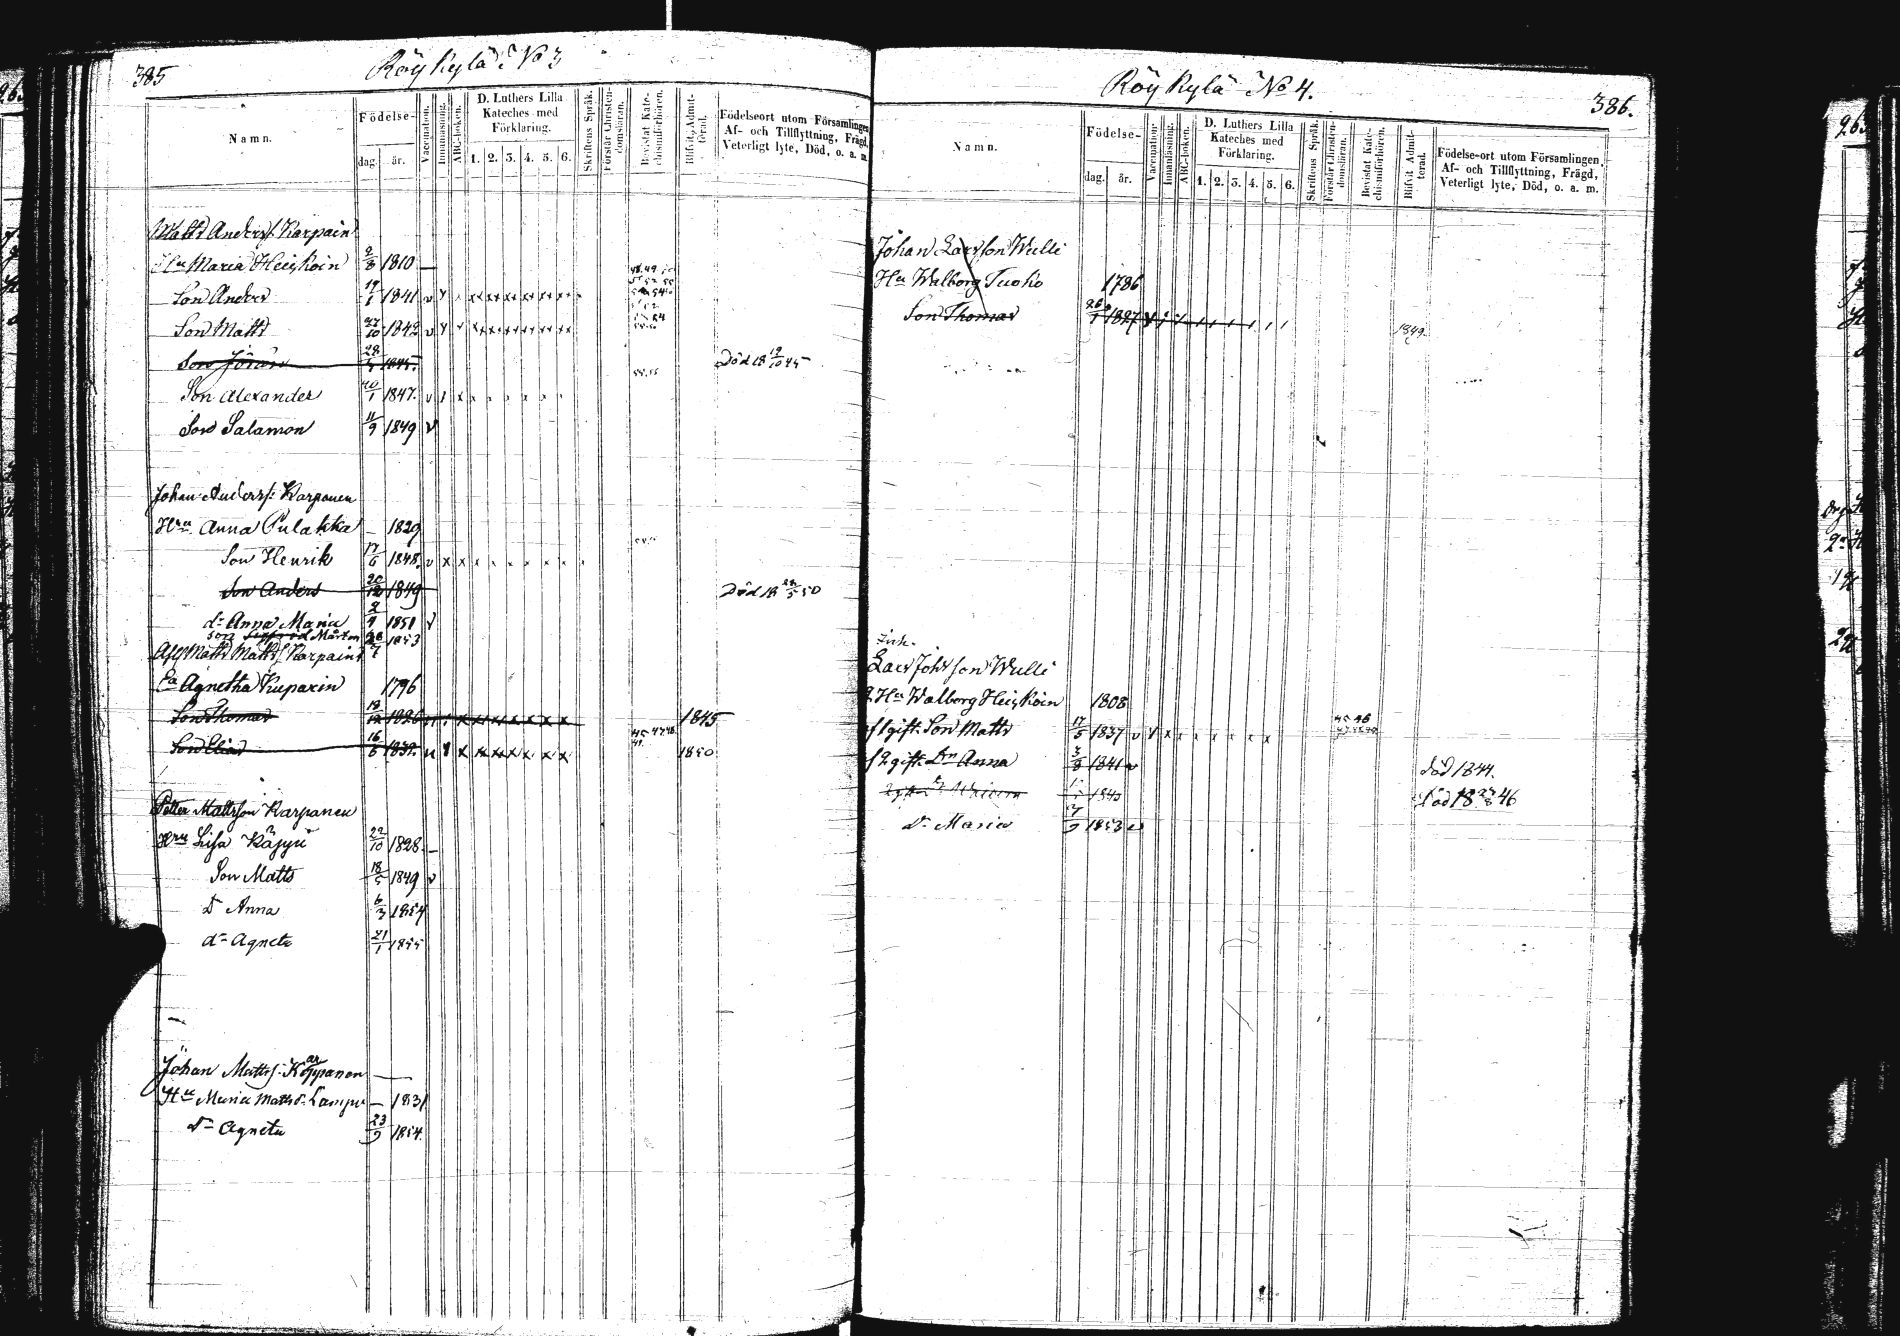 385
Röykylä No 3
Namn.
Födelse-
dag. år.
Vaccination.
Innanläsning.
ABC-boken.
D. Luthers Lilla
Kateches med
Förklaring.
1. 2. 3. 4. 5. 6.
Skriftens Språk.
Förstår Christen-
domsläran.
Bevistat Kate-
chismiförhören.
Blifvit Admit-
terad.
Födelseort utom Församlingen
Af- och Tillflyttning, Frägd,
Veterligt lyte, Död, o. a. m.
Matts Anderss. Karpain
Hu Maria Heiskoin 2/8 1810
Son Anders 19/1 1841
Son Matts 27/10 1842
Son Jöran 28/4 1845 Död 18 19/10 45
Son Alexander 20/1 1847
Son Salamon 11/9 1849
Johan Anderss: Karpanen
Hru Anna Pulakka 1829
Son Henrik 17/6 1848
Son Anders 20/12 1849 Död 18 5 50
dr Anna Maria 2/9 1851
Son Mårten 1853
Afl. Matts Matts. Karpains
Ea Agnetha Kuparin 1796
Son Thomas 18/12 1826 1845
Son Elias 16/6 1832 1850
Petter Mattsson Karpanen
Hru Lisa Käyyü 22/10 1828
Son Matts 18/5 1849
Dr Anna 6/3 1854
dr Agneta 21/1 1855
Johan Mattss. Karppanen
Hu Maria Mattsdr Lampu 1831
Dr Agneta 23/9 1854
Röykylä No 4.
386.
Namn.
Födelse-
dag. år.
Vaccination.
Innanläsning.
ABC-boken.
D. Luthers Lilla
Kateches med
Förklaring.
1. 2. 3. 4. 5. 6.
Skriftens Språk.
Förstår Christen-
domsläran.
Bevistat Kate-
chismiförhören.
Blifvit Admit-
terad.
Födelse-ort utom Församlingen,
Af- och Tillflyttning, Frägd,
Veterligt lyte, Död, o. a. m.
Johan Larsson Wulli
Hu Walborg Tuoho 1786
Son Thomas 26/1 1827 1849
Inh.
Lars Johsson Wulli
2 Hu Walborg Heiskoin 1808
f 1 gift. Son Matts 17/5 1837 45 46
f 2 gift. Dr Anna 3/8 1841 död 1844.
död 18 46
Dr Maria 7/9 1853